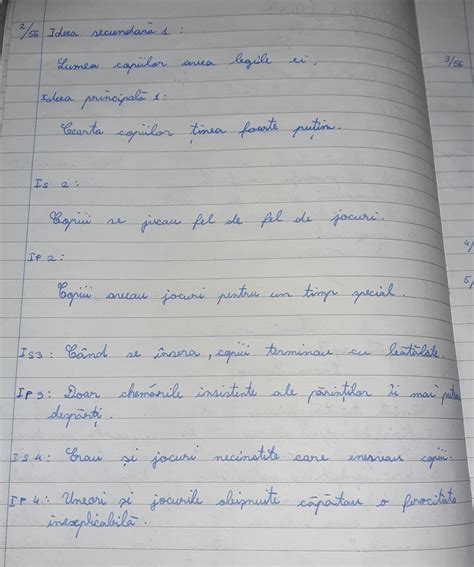 2/56 Ideea secundară 1 :
Lumea copiilor avea legile ei.
3/56
Ideea principală 1:
Cearta copiilor ținea foarte puțin.
Is 2:
Copiii se jucau fel de fel de jocuri.
4/
IP 2:
5/
Copiii aveau jocuri pentru un timp special.
Is3: Când se însera, copiii terminau cu
IP 3: Doar chemările insistente ale părinților îi mai
despărți.
Is 4: Erau și jocuri necinstite care enervau copiii.
IP 4: Uneori și jocurile obișnuite căpătau o ferocitate
inexplicabilă.